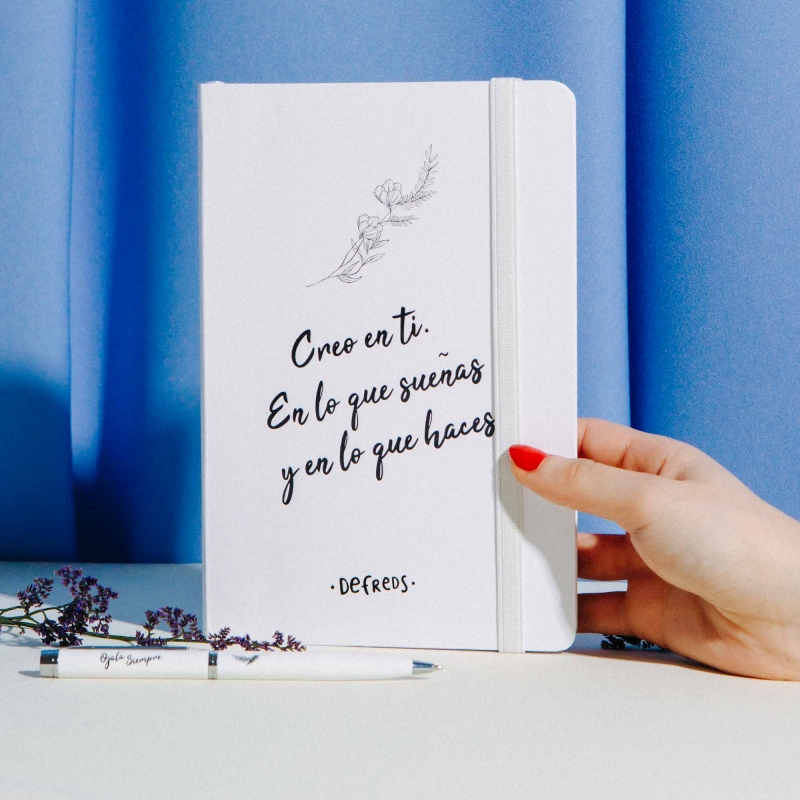 Creo en ti.
En lo que sueñas
y en lo que haces
·DEFREDS·
Ojalá Siempre